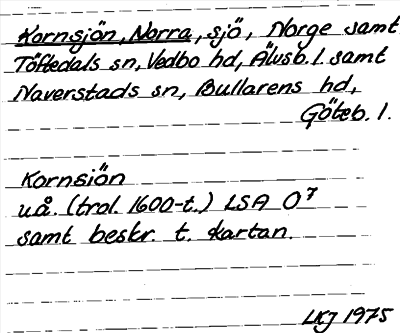 Kornsjön, Norra, sjö, Norge samt
Töftedals sn, Vedbo hd, Älvsb. l. samt
Naverstads sn, Bullarens hd,
Göteb. l.
Kornsiön
u.å. (trol. 1600-t.) LSA O⁷
samt beskr. t. kartan.
LKJ 1975